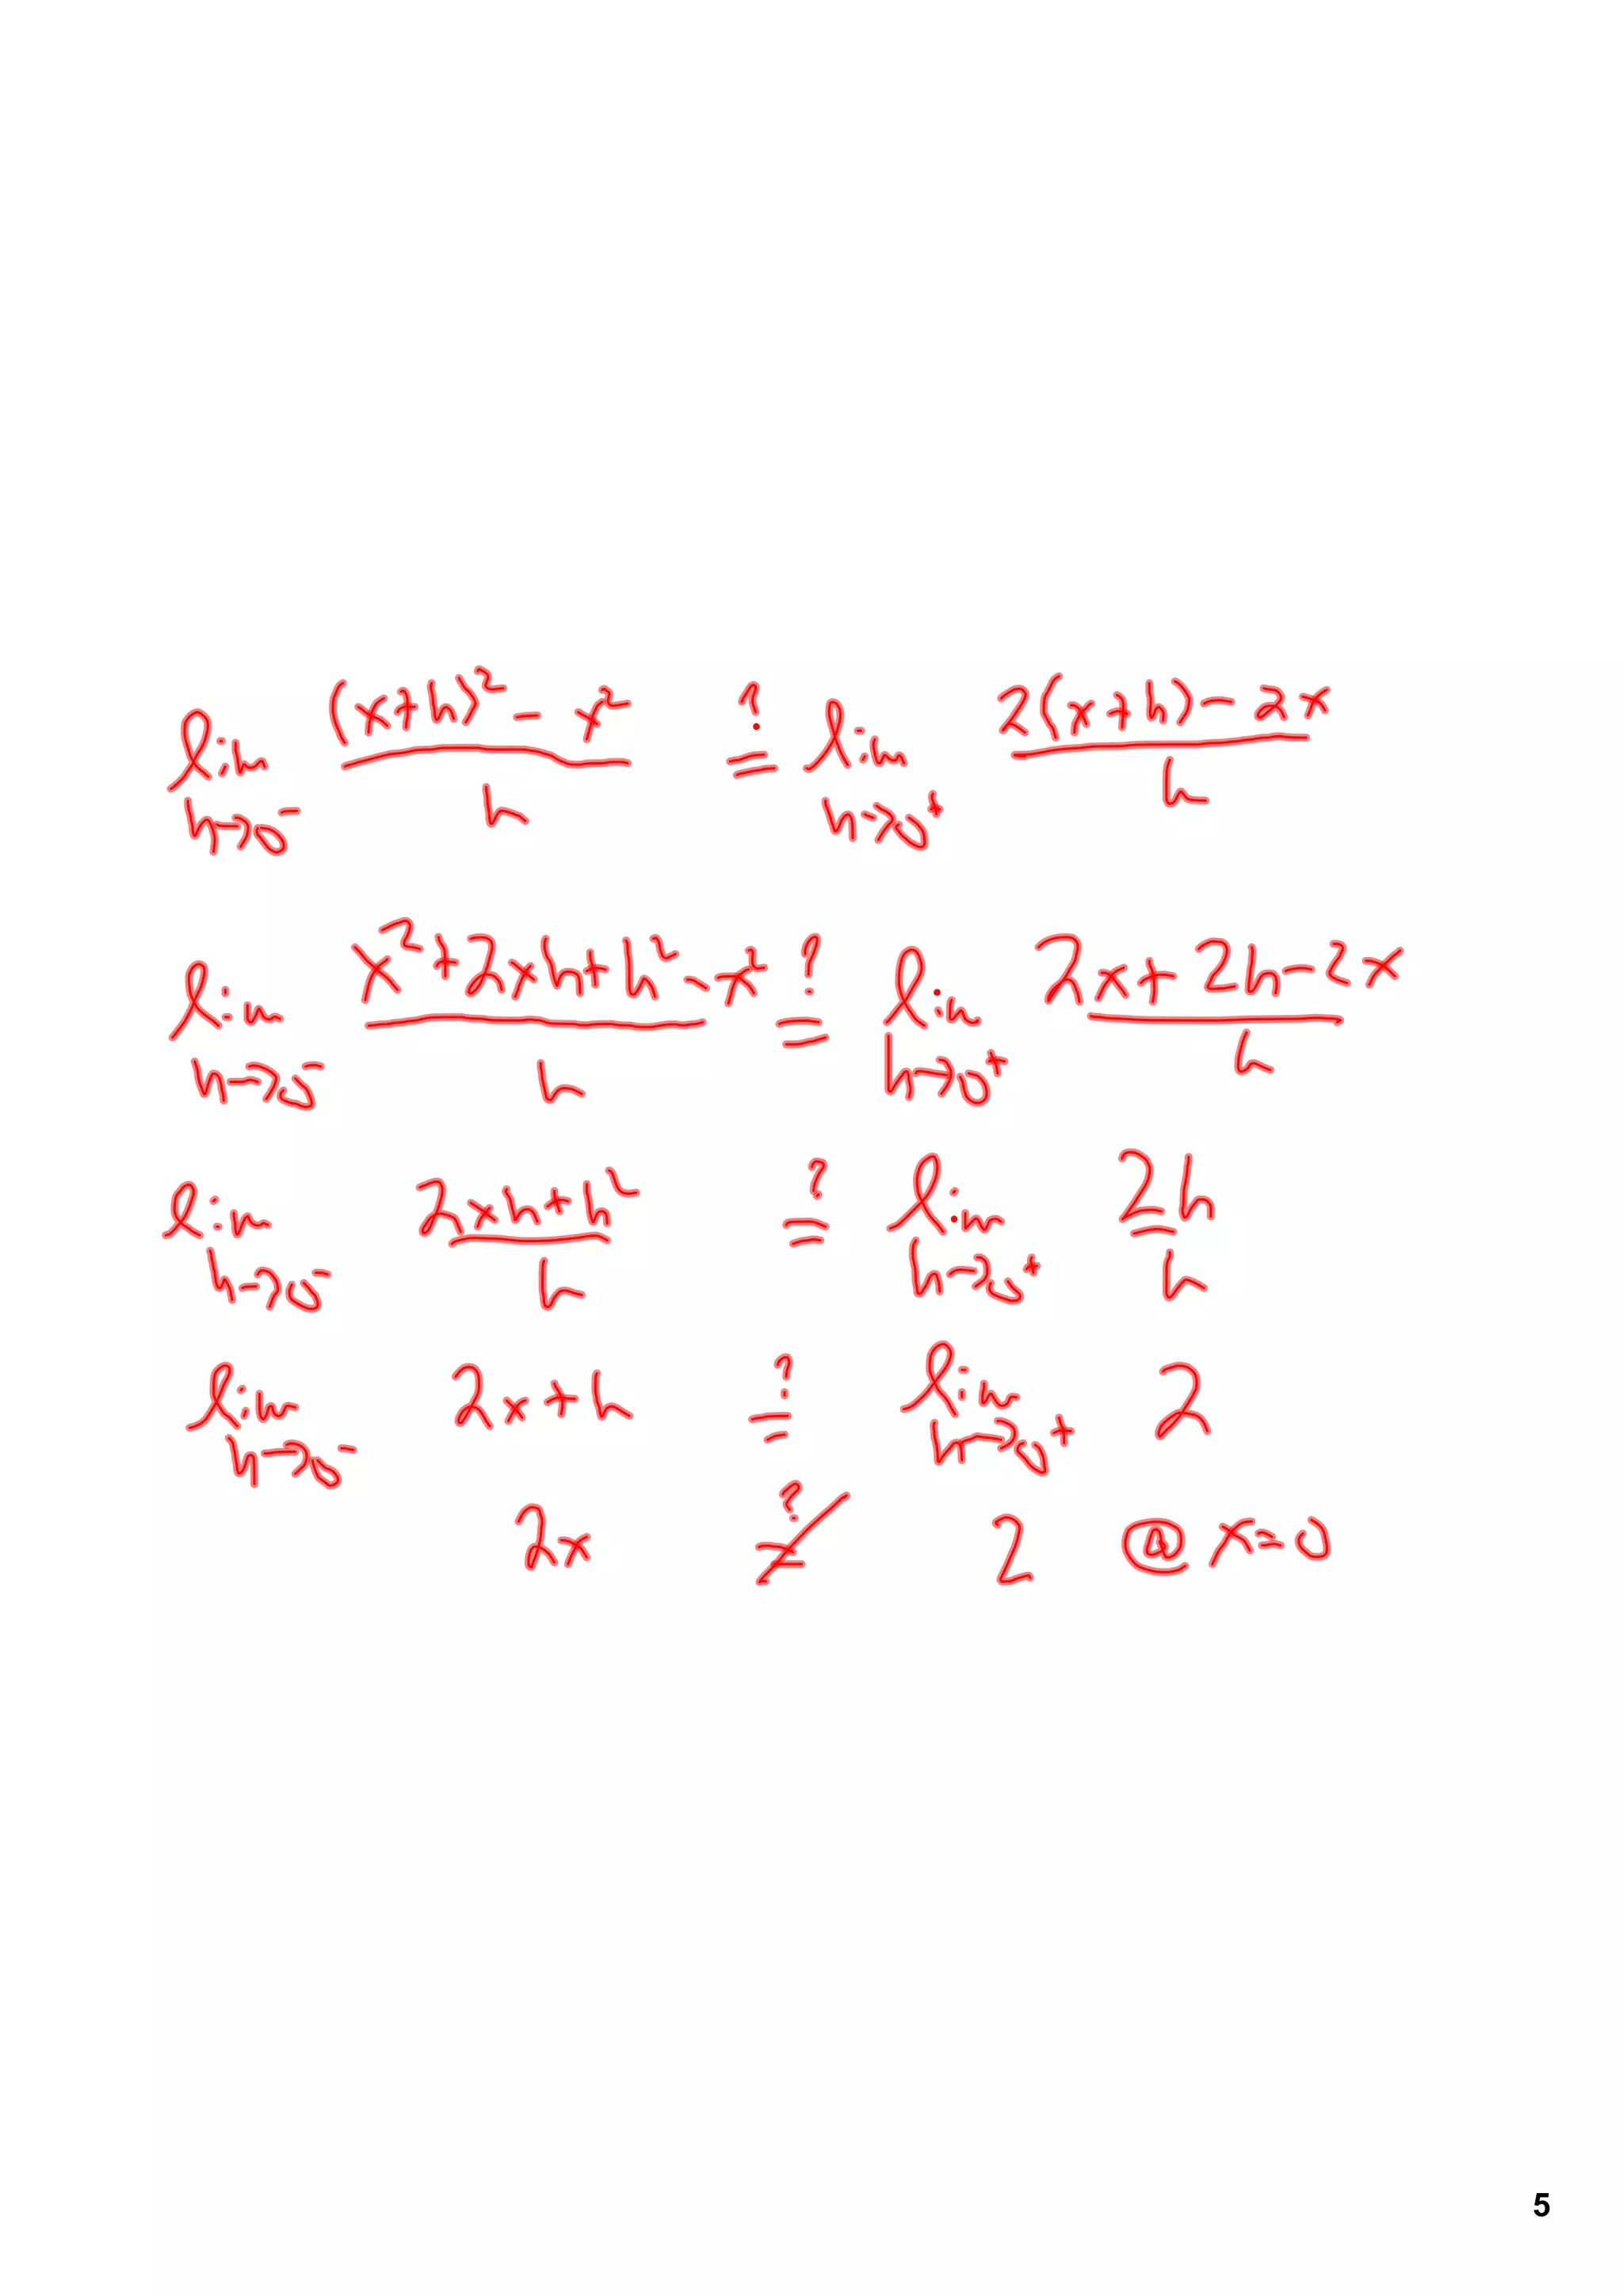 lim h→0⁻ ((x+h)² - x²)/h ?= lim h→0⁺ (2(x+h) - 2x)/h
lim h→0⁻ (x²+2xh+h²-x²)/h ?= lim h→0⁺ (2x+2h-2x)/h
lim h→0⁻ (2xh+h²)/h ?= lim h→0⁺ 2h/h
lim h→0⁻ 2x+h ?= lim h→0⁺ 2
2x ?≠ 2 @ x=0
5